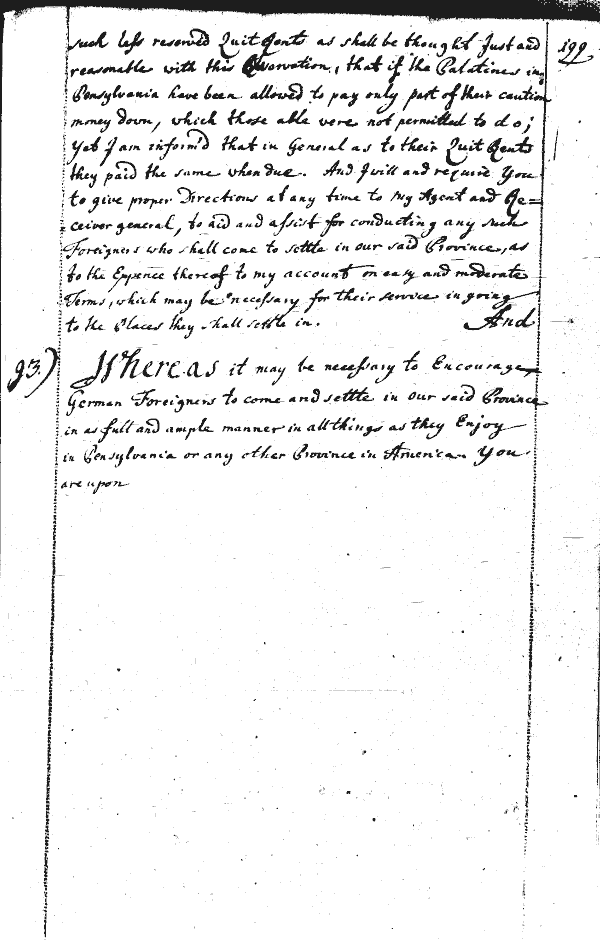 199
such less reserved Quit Rents as shall be thought Just and
reasonable with this Observation, that if the Palatines in
Pensylvania have been allowed to pay only part of their caution
money down, which those able were not permitted to do;
yet I am inform'd that in General as to their Quit Rents
they paid the same when due. And I will and require You
to give proper Directions at any time to my Agent and Re=
=ceiver general, to aid and assist for conducting any such
Foreigners who shall come to settle in our said Province, as
to the Expence thereof to my account on easy and moderate
Terms, which may be necessary for their service in going
to the Places they shall settle in. And
93.) Whereas it may be necessary to Encourage
German Foreigners to come and settle in our said Province
in as full and ample manner in all things as they Enjoy
in Pensylvania or any other Province in America. You
are upon